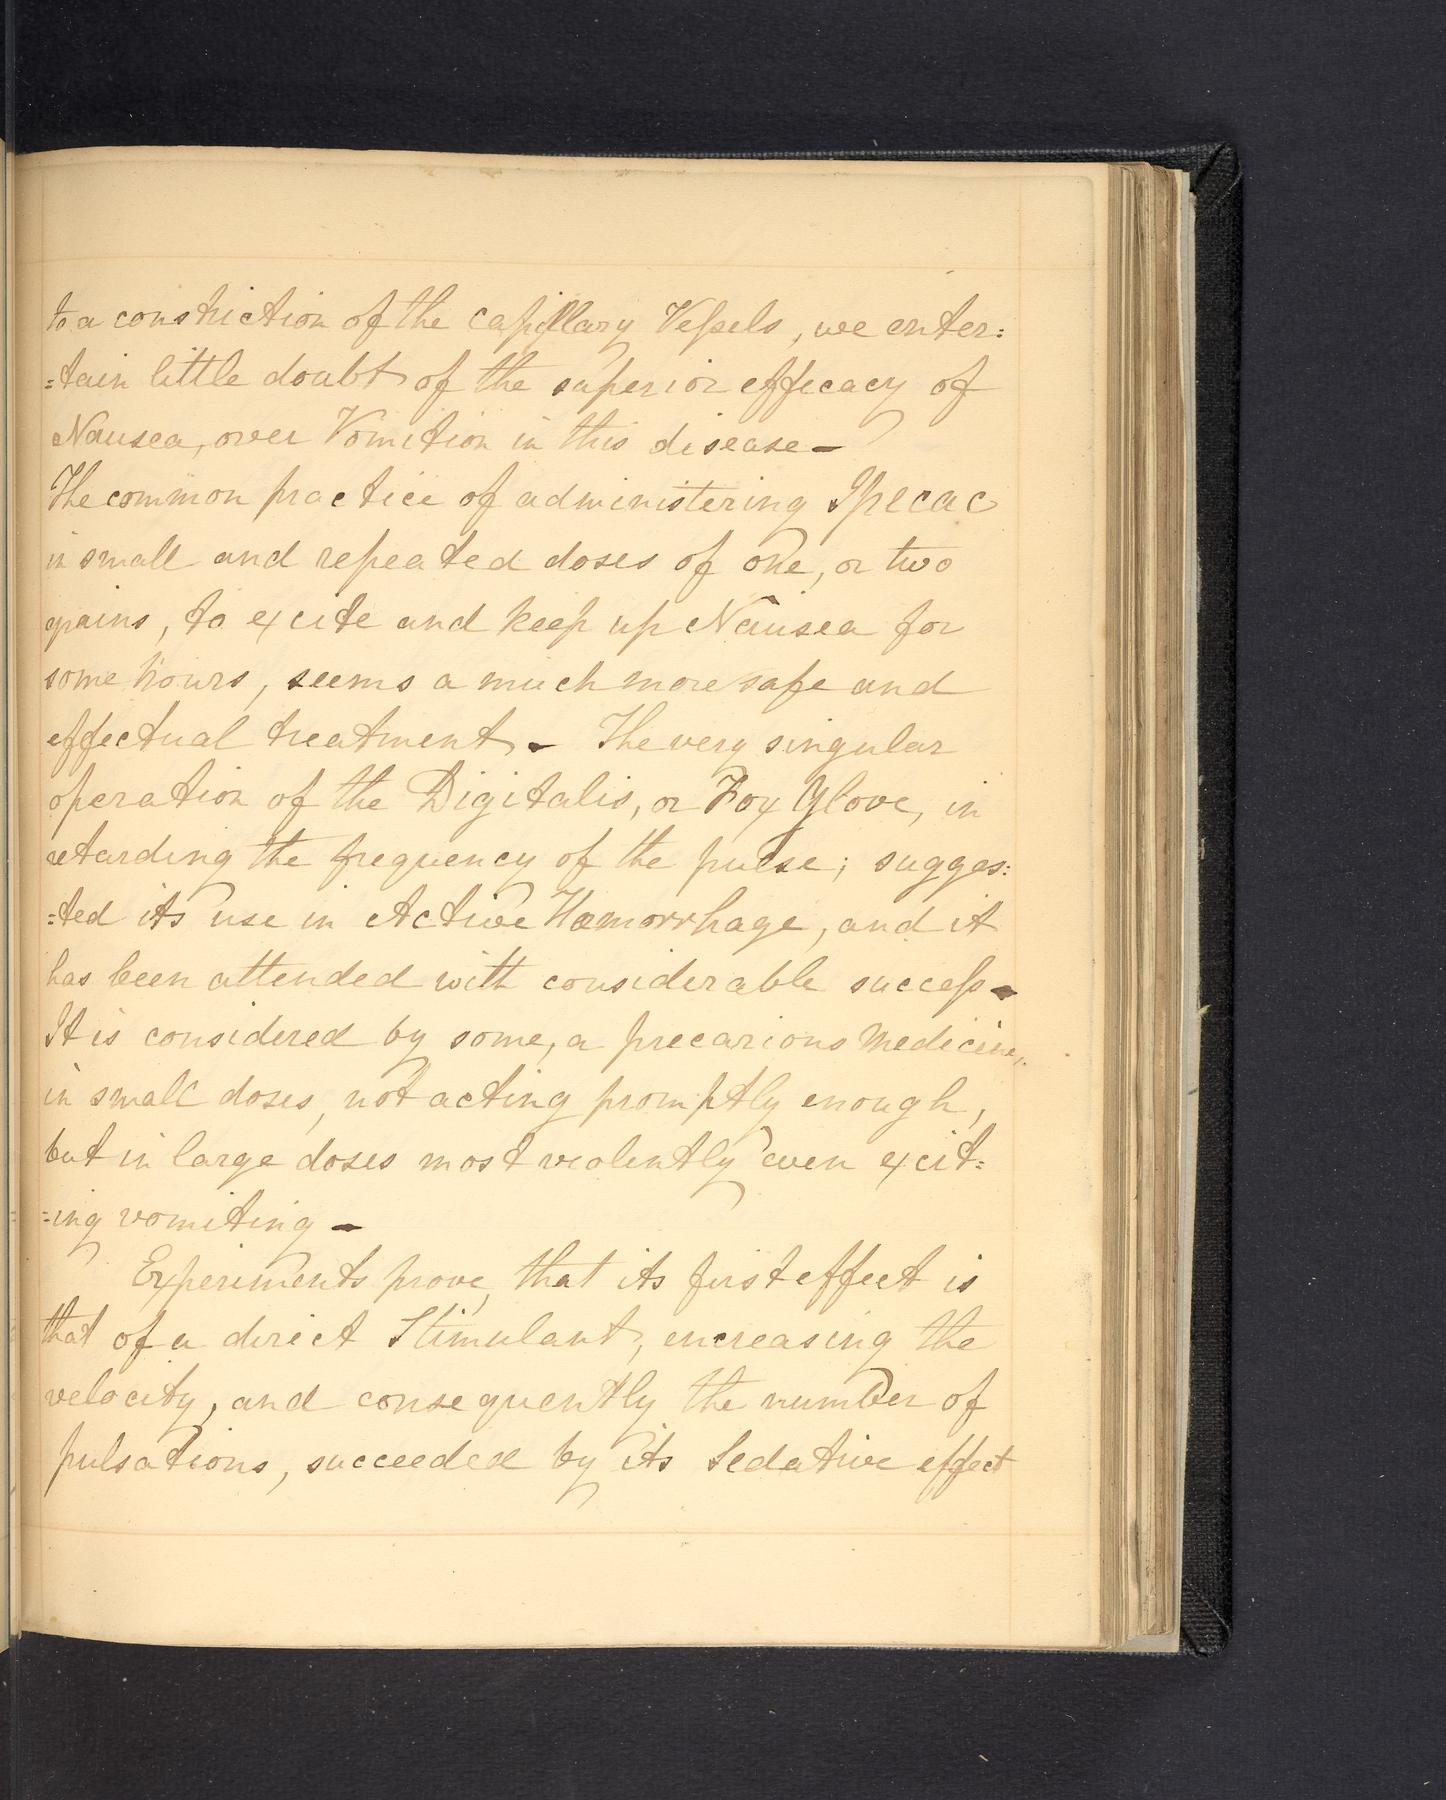 to a constriction of the capillary Veſsels, we enter=
=tain little doubt of the superior efficacy of
Nausea, over Vomition in this disease —
The common practice of administering Ipecac
in small and repeated doses of one, or two
grains, to excite and keep up Nausea for
some hours, seems a much more safe and
effectual treatment. — The very singular
operation of the Digitalis, or Fox Glove, in
retarding the frequency of the pulse; sugges=
=ted its use in Active Hæmorrhage, and it
has been attended with considerable succeſs —
It is considered by some, a precarious Medicine,
in small doses, not acting promptly enough,
but in large doses most violently even excit=
=ing vomiting —
Experiments prove, that its first effect is
that of a direct Stimulant, encreasing the
velocity, and consequently the number of
pulsations, succeeded by its Sedative effect